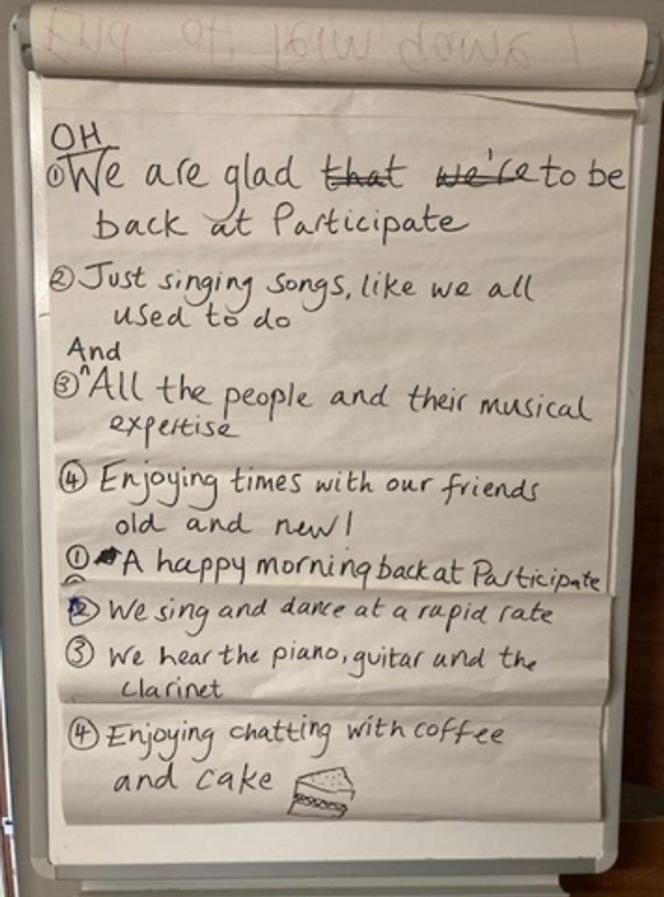 OH
① We are glad that we're to be
back at Participate
② Just singing songs, like we all
used to do
And
③ ^All the people and their musical
expertise
④ Enjoying times with our friends
old and new!
① A happy morning back at Participate
② We sing and dance at a rapid rate
③ We hear the piano, guitar and the
clarinet
④ Enjoying chatting with coffee
and cake